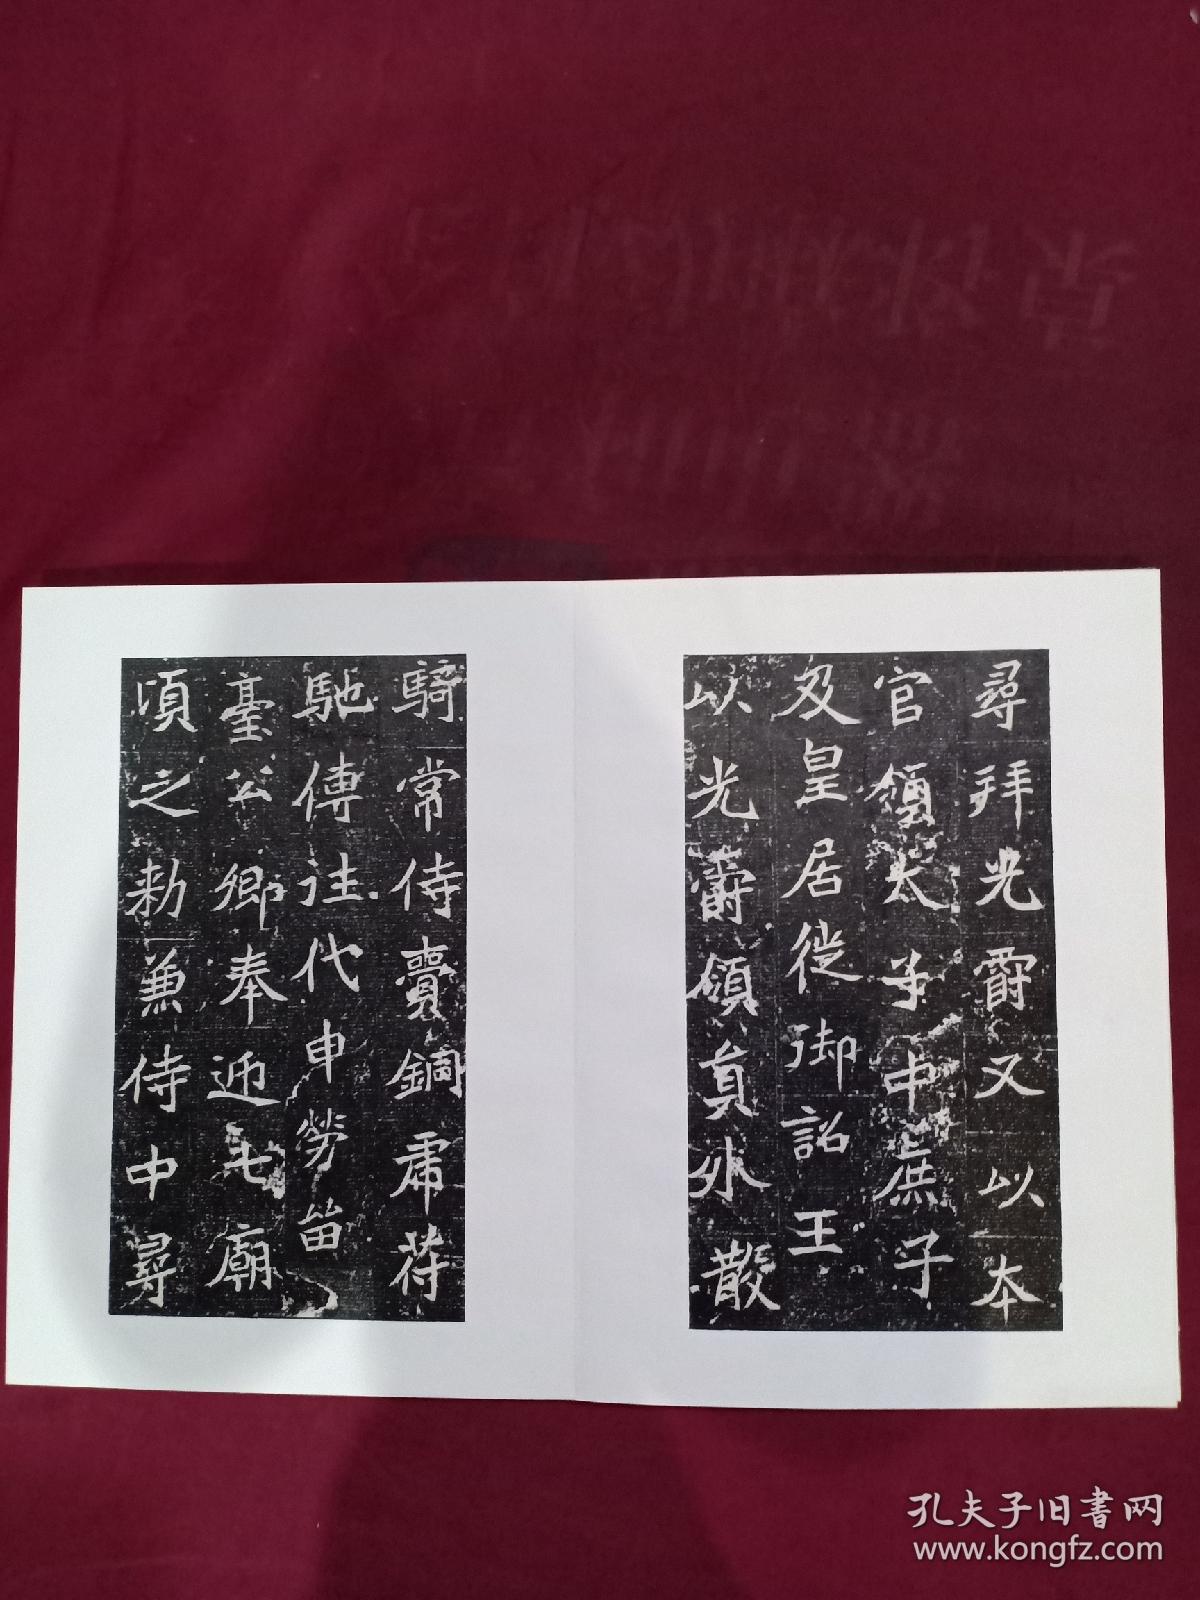 尋拜光爵又以本
官領太子中庶子
及皇居徙御詔王
以光爵領員外散
騎常侍賷銅虎符
馳傳往代申勞留
臺公卿奉迎七廟
頃之勑兼侍中尋
孔夫子旧书网
www.kongfz.com